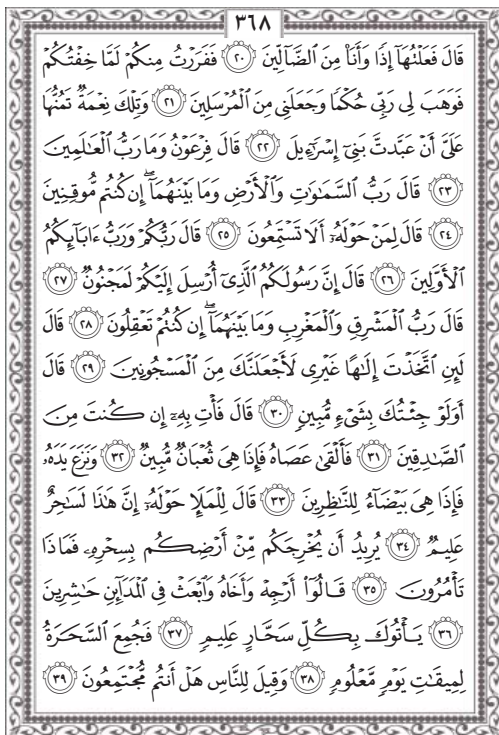 ٣٦٨
قَالَ فَعَلْتُهَآ إِذًا وَأَنَا۠ مِنَ ٱلضَّآلِّينَ ٢٠ فَفَرَرْتُ مِنكُمْ لَمَّا خِفْتُكُمْ
فَوَهَبَ لِى رَبِّى حُكْمًا وَجَعَلَنِى مِنَ ٱلْمُرْسَلِينَ ٢١ وَتِلْكَ نِعْمَةٌ تَمُنُّهَا
عَلَىَّ أَنْ عَبَّدتَّ بَنِىٓ إِسْرَٰٓءِيلَ ٢٢ قَالَ فِرْعَوْنُ وَمَا رَبُّ ٱلْعَٰلَمِينَ
٢٣ قَالَ رَبُّ ٱلسَّمَٰوَٰتِ وَٱلْأَرْضِ وَمَا بَيْنَهُمَآ ۖ إِن كُنتُم مُّوقِنِينَ
٢٤ قَالَ لِمَنْ حَوْلَهُۥٓ أَلَا تَسْتَمِعُونَ ٢٥ قَالَ رَبُّكُمْ وَرَبُّ ءَابَآئِكُمُ
ٱلْأَوَّلِينَ ٢٦ قَالَ إِنَّ رَسُولَكُمُ ٱلَّذِىٓ أُرْسِلَ إِلَيْكُمْ لَمَجْنُونٌ ٢٧
قَالَ رَبُّ ٱلْمَشْرِقِ وَٱلْمَغْرِبِ وَمَا بَيْنَهُمَآ ۖ إِن كُنتُمْ تَعْقِلُونَ ٢٨ قَالَ
لَئِنِ ٱتَّخَذْتَ إِلَٰهًا غَيْرِى لَأَجْعَلَنَّكَ مِنَ ٱلْمَسْجُونِينَ ٢٩ قَالَ
أَوَلَوْ جِئْتُكَ بِشَىْءٍ مُّبِينٍ ٣٠ قَالَ فَأْتِ بِهِۦٓ إِن كُنتَ مِنَ
ٱلصَّٰدِقِينَ ٣١ فَأَلْقَىٰ عَصَاهُ فَإِذَا هِىَ ثُعْبَانٌ مُّبِينٌ ٣٢ وَنَزَعَ يَدَهُۥ
فَإِذَا هِىَ بَيْضَآءُ لِلنَّٰظِرِينَ ٣٣ قَالَ لِلْمَلَإِ حَوْلَهُۥٓ إِنَّ هَٰذَا لَسَٰحِرٌ
عَلِيمٌ ٣٤ يُرِيدُ أَن يُخْرِجَكُم مِّنْ أَرْضِكُم بِسِحْرِهِۦ فَمَاذَا
تَأْمُرُونَ ٣٥ قَالُوٓا۟ أَرْجِهْ وَأَخَاهُ وَٱبْعَثْ فِى ٱلْمَدَآئِنِ حَٰشِرِينَ
٣٦ يَأْتُوكَ بِكُلِّ سَحَّارٍ عَلِيمٍ ٣٧ فَجُمِعَ ٱلسَّحَرَةُ
لِمِيقَٰتِ يَوْمٍ مَّعْلُومٍ ٣٨ وَقِيلَ لِلنَّاسِ هَلْ أَنتُم مُّجْتَمِعُونَ ٣٩